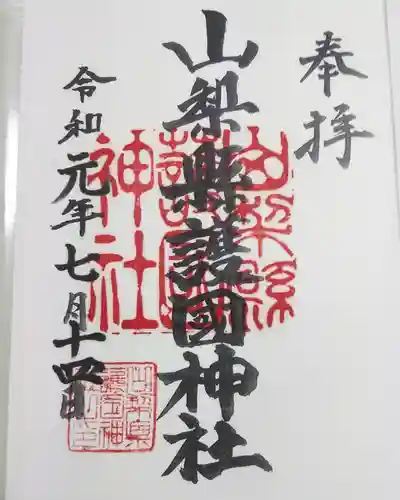 奉拝
山梨縣護國神社
令和元年七月十四日
山梨縣
護國
神社